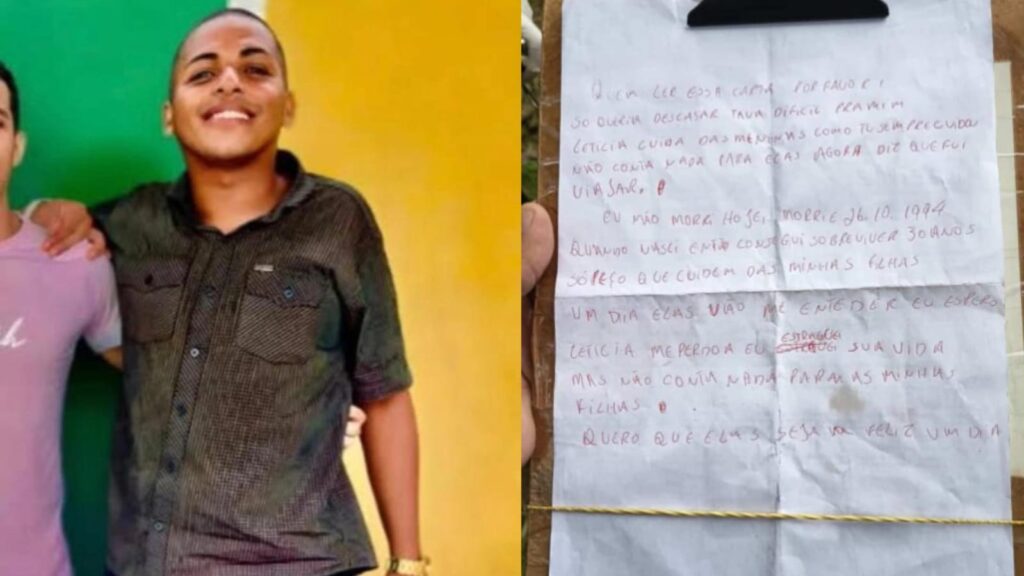 QUEM LER ESSA CARTA POR FAVOR!
SO QUERIA DESCASAR TAVA DIFICIL PRA MIM
LETICIA CUIDA DAS MENINAS COMO TU SEMPRE CUIDOU
NÃO CONTA NADA PARA ELAS AGORA DIZ QUE FUI
VIASAR.
EU NÃO MORRI HOJE, MORRI E 26.10.1994
QUANDO NASCI ENTÃO CONSEGUI SOBREVIVER 30 ANOS
SÓ PEÇO QUE CUIDEM DAS MINHAS FILHAS
UM DIA ELAS VÃO ME ENTEDER EU ESPERO
LETICIA ME PERDOA EU ESTRAGUEI SUA VIDA
MAS NÃO CONTA NADA PARA AS MINHAS
FILHAS.
QUERO QUE ELAS SEJA FELIZ UM DIA